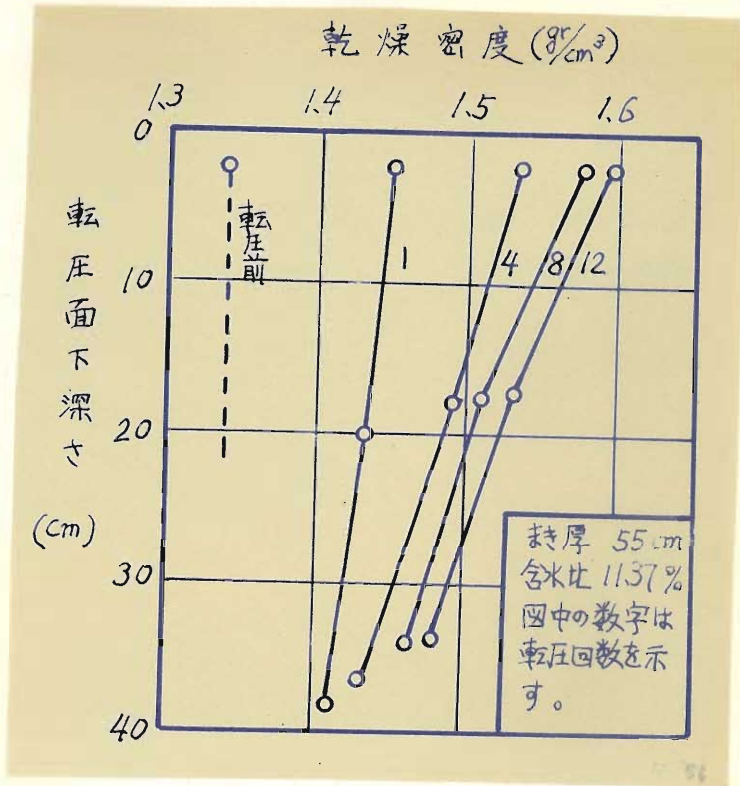 乾燥密度(gr/cm³)
1.3 1.4 1.5 1.6
0
10
20
30
40
転圧面下深さ
(cm)
転圧前
1 4 8 12
まき厚 55cm
含水比 11.37%
図中の数字は
転圧回数を示
す。